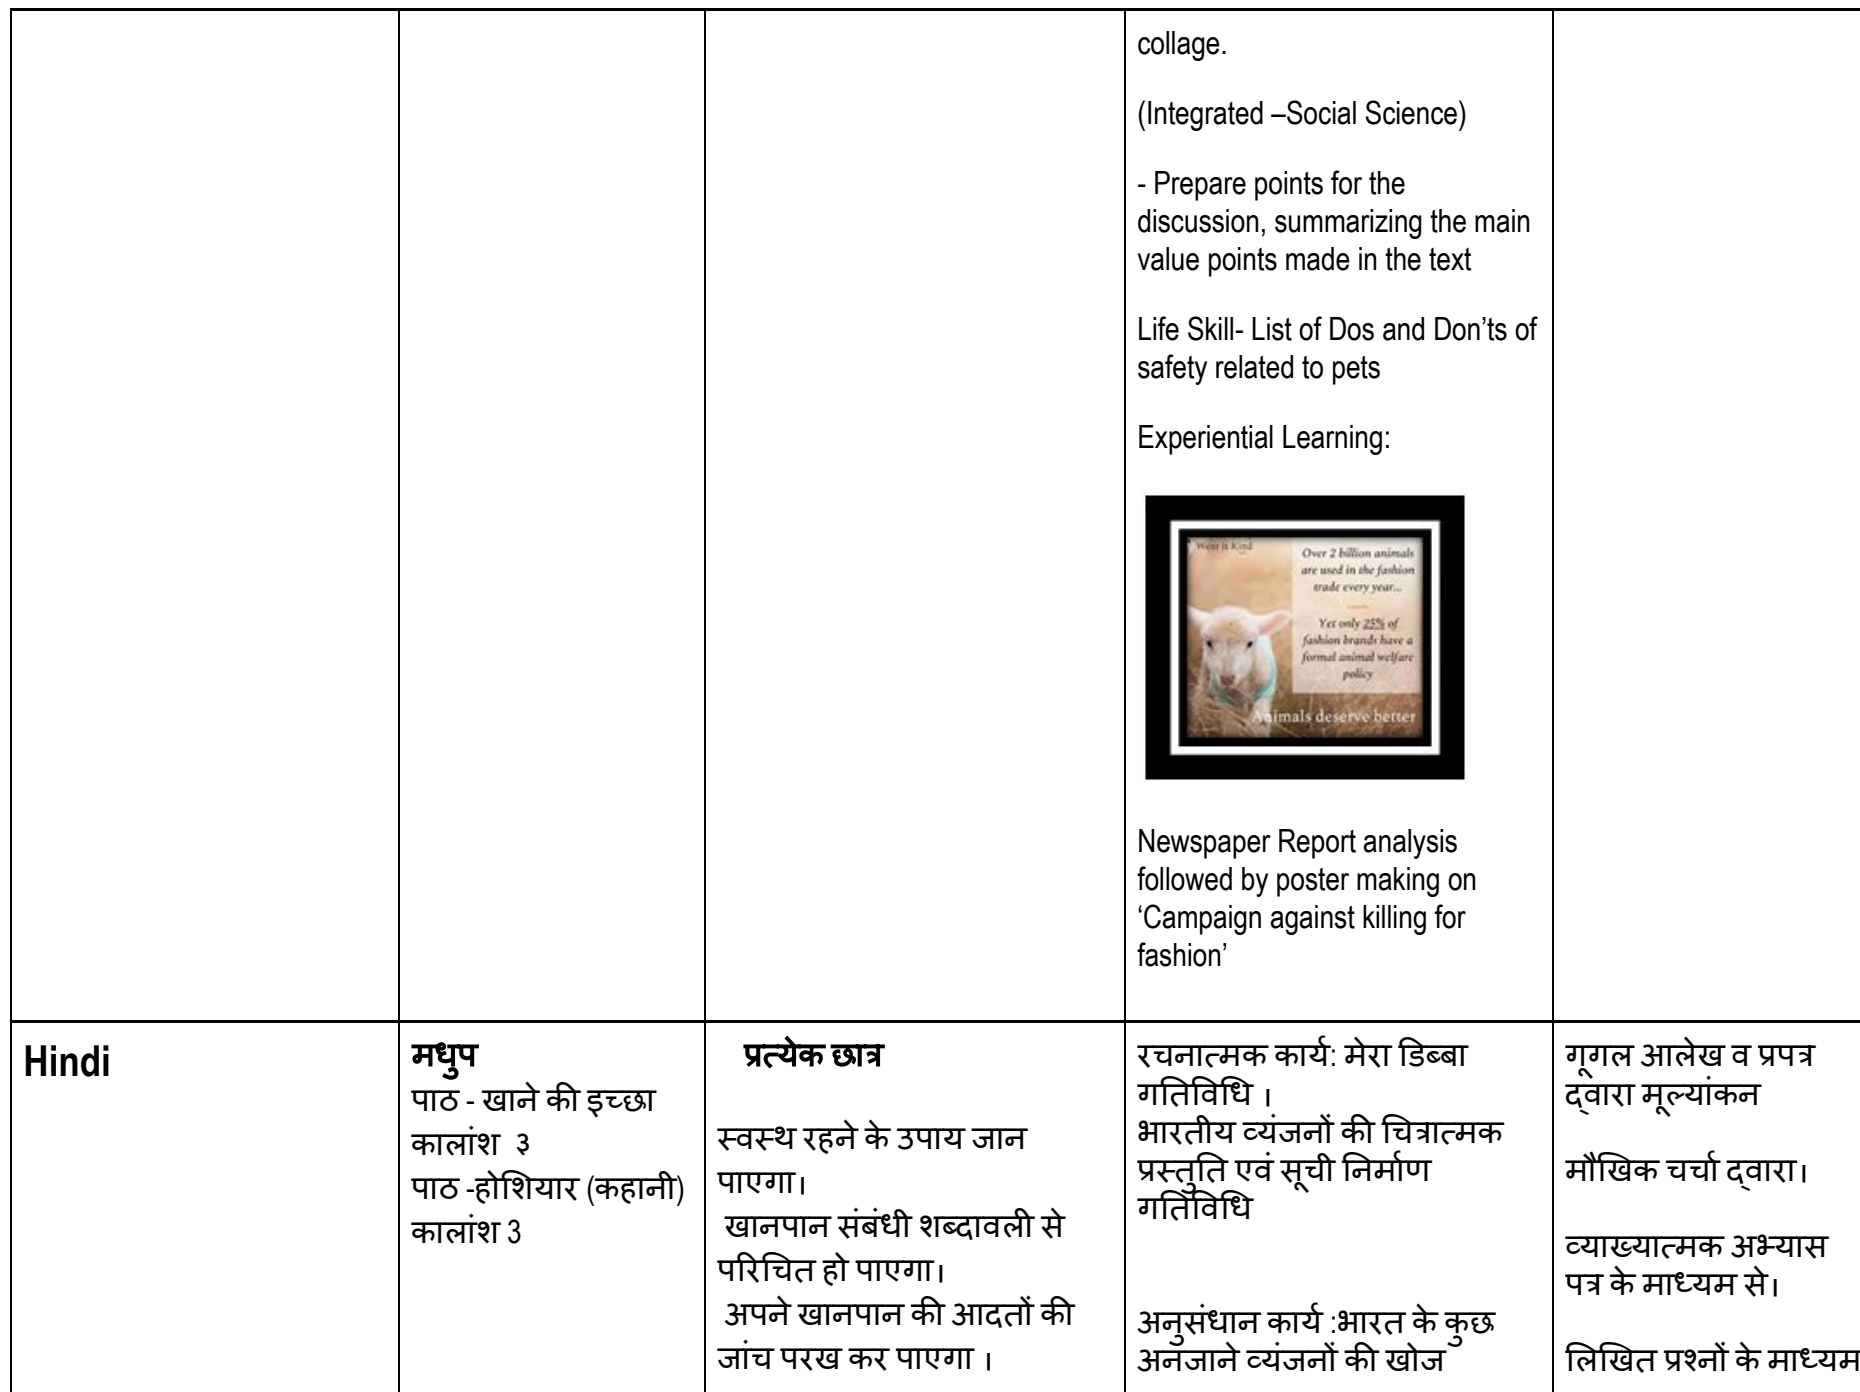 collage.
(Integrated –Social Science)
- Prepare points for the
discussion, summarizing the main
value points made in the text
Life Skill- List of Dos and Don'ts of
safety related to pets
Experiential Learning:
Wear it Kind
Over 2 billion animals
are used in the fashion
trade every year...
Yet only 25% of
fashion brands have a
formal animal welfare
policy
Animals deserve better
Newspaper Report analysis
followed by poster making on
‘Campaign against killing for
fashion’
Hindi
मधुप
पाठ - खाने की इच्छा
कालांश ३
पाठ -होशियार (कहानी)
कालांश 3
प्रत्येक छात्र
स्वस्थ रहने के उपाय जान
पाएगा।
खानपान संबंधी शब्दावली से
परिचित हो पाएगा।
अपने खानपान की आदतों की
जांच परख कर पाएगा ।
रचनात्मक कार्य: मेरा डिब्बा
गतिविधि ।
भारतीय व्यंजनों की चित्रात्मक
प्रस्तुति एवं सूची निर्माण
गतिविधि
अनुसंधान कार्य :भारत के कुछ
अनजाने व्यंजनों की खोज
गूगल आलेख व प्रपत्र
द्वारा मूल्यांकन
मौखिक चर्चा द्वारा।
व्याख्यात्मक अभ्यास
पत्र के माध्यम से।
लिखित प्रश्नों के माध्यम